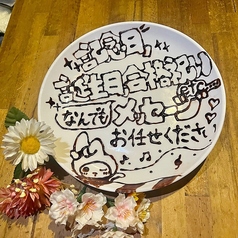 記念日、
誕生日合格祝い
なんでも メッセージ
お任せください